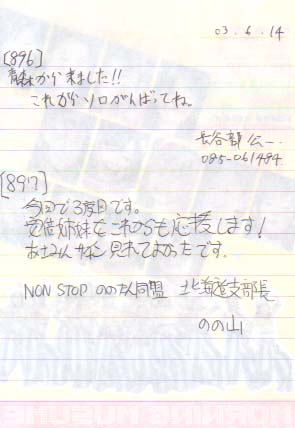 03.6.14
[896]
青森から来ました!!
これからソロがんばってね。
長谷部 公一
085-061484
[897]
今回で3度目です。
姉妹をこれからも応援します!
見れてよかったです。
NON STOP ののたん同盟 北海道支部長
のの山
MORNING MUSUME